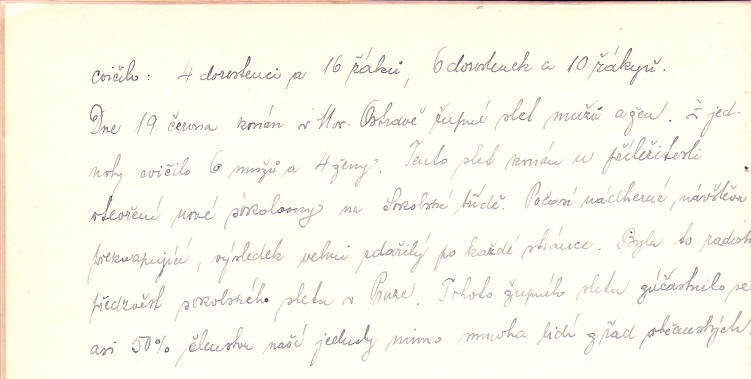 cvičilo: 4 dorostenci a 16 žáků, 6 dorostenek a 10 žákyň.
Dne 19. června konán v Mor. Ostravě župní slet mužů a žen. Z jed-
noty cvičilo 6 mužů a 4 ženy. Tento slet konán u příležitosti
otevření nové sokolovny na Sokolské třídě. Počasí nádherné, návštěva
překvapující, výsledek velmi zdařilý po každé stránce. Byla to radost
předzvěst sokolského sletu v Praze. Tohoto župního sletu zúčastnilo se
asi 50% členstva naší jednoty mimo mnoha lidí z řad občanských.